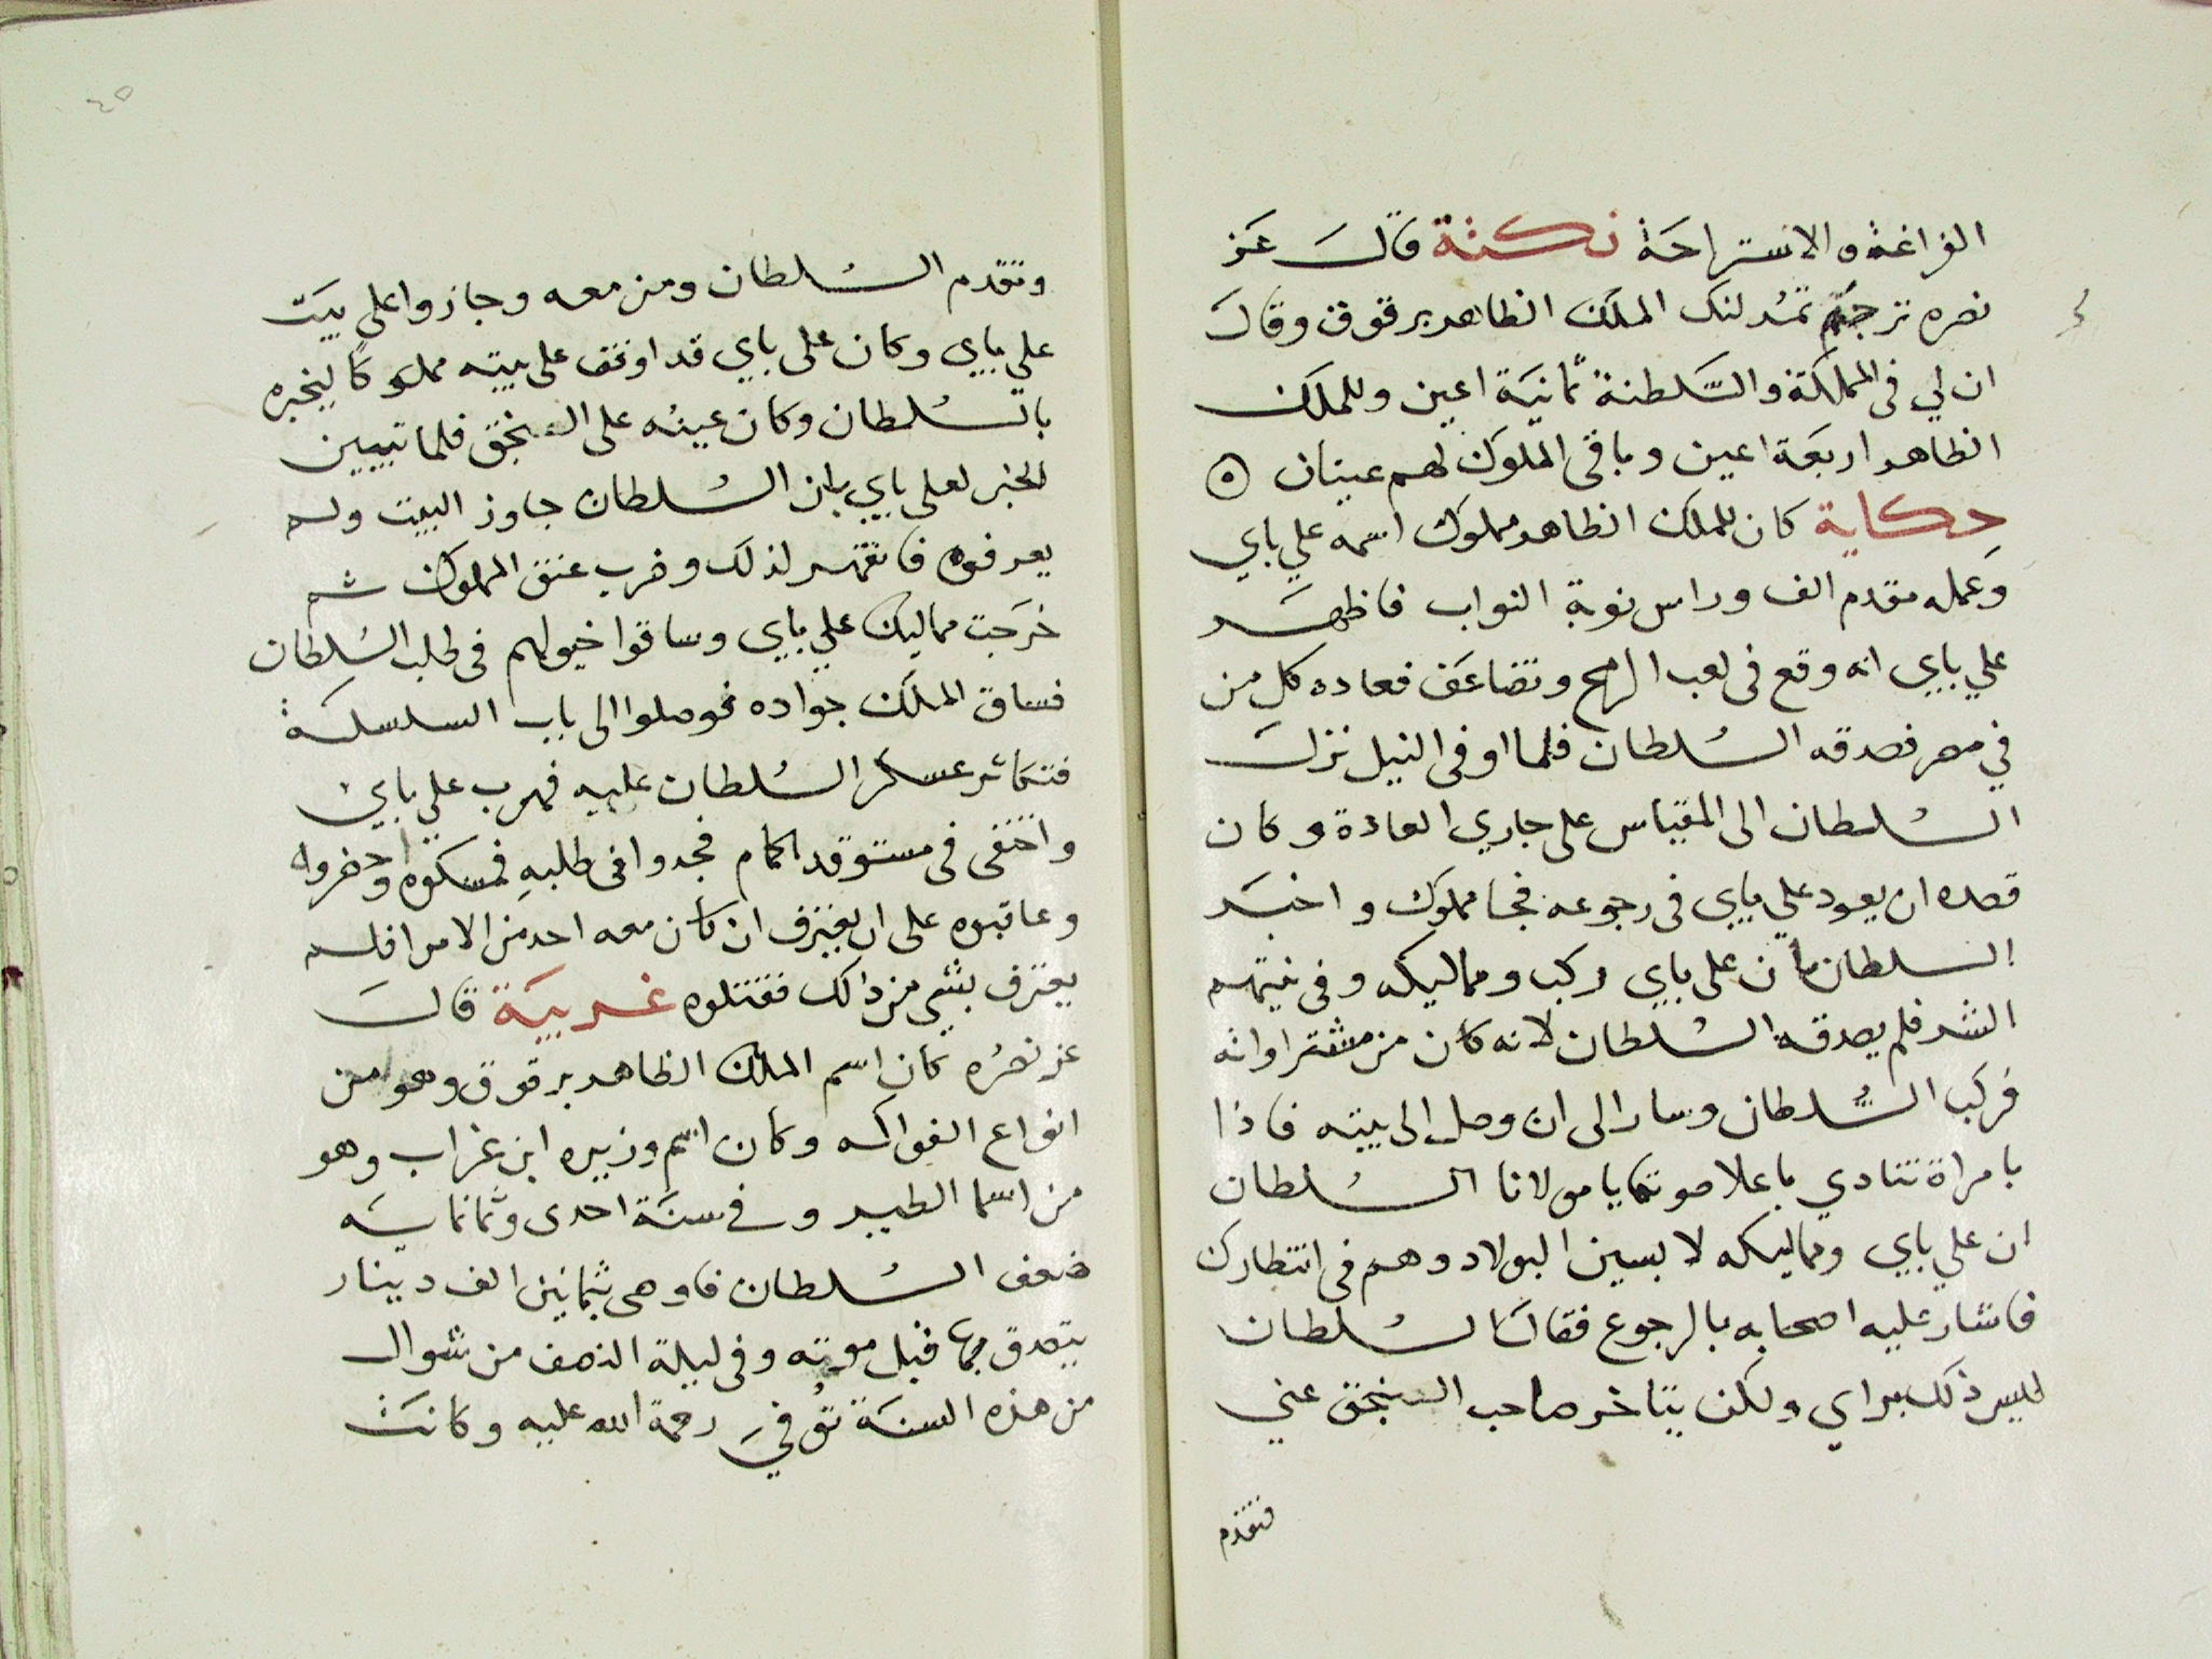 الفراغة والاستراحة نكتة قال عز
نصره ترجم تمرلنك الملك الظاهر برقوق وقال
ان لي في المملكة والسلطنة ثمانية اعين وللملك
الظاهر اربعة اعين وباقي الملوك لهم عينان ٥
حكاية كان للملك الظاهر مملوك اسمه علي باي
وعمله مقدم الف وراس نوبة النواب فاظهر
علي باي انه وقع في لعب الرمح وتضاعف فعاده كل من
في مصر فصدقه السلطان فلما اوفى النيل نزل
السلطان الى المقياس على جاري العادة وكان
قصده ان يعود علي باي في رجوعه فجا مملوك واخبر
السلطان بان علي باي ركب ومماليكه وفي نيتهم
الشر فلم يصدقه السلطان لانه كان من مشتراواته
فركب السلطان وسار الى ان وصل الى بيته فاذا
بامراة تنادي باعلا صوتها يا مولانا السلطان
ان علي باي ومماليكه لابسين البولاد وهم في انتظارك
فاشار عليه اصحابه بالرجوع فقال السلطان
ليس ذلك براي ولكن يتاخر صاحب السنجق عني
فتقدم
٤٥
وتقدم السلطان ومن معه وجازوا على بيت
علي باي وكان علي باي قد اوقف على بيته مملوكا ليخبره
بالسلطان وكان عينه على السنجق فلما تبيين
الخبر لعلي باي بان السلطان جاوز البيت ولم
يعرفوه فانقهر لذلك وضرب عنق المملوك ثم
خرجت مماليك علي باي وساقوا خيولهم في طلب السلطان
فساق الملك جواده فوصلوا الى باب السلسلة
فتكاثر عسكر السلطان عليه فهرب علي باي
واختفى في مستوقد الحمام فجدوا في طلبه فمسكوه واحضروه
وعاقبوه على ان يعترف ان كان معه احد من الامرا فلم
يعترف بشي من ذالك فقتلوه غريبة قال
عز نصره كان اسم الملك الظاهر برقوق وهو من
انواع الفواكه وكان اسم وزيره ابن غراب وهو
من اسما الطير وفي سنة احدى وثمانمايه
ضعف السلطان فاوصى بثمانين الف دينار
يتصدق بها قبل موته وفي ليلة النصف من شوال
من هذه السنة توفي رحمة الله عليه وكانت